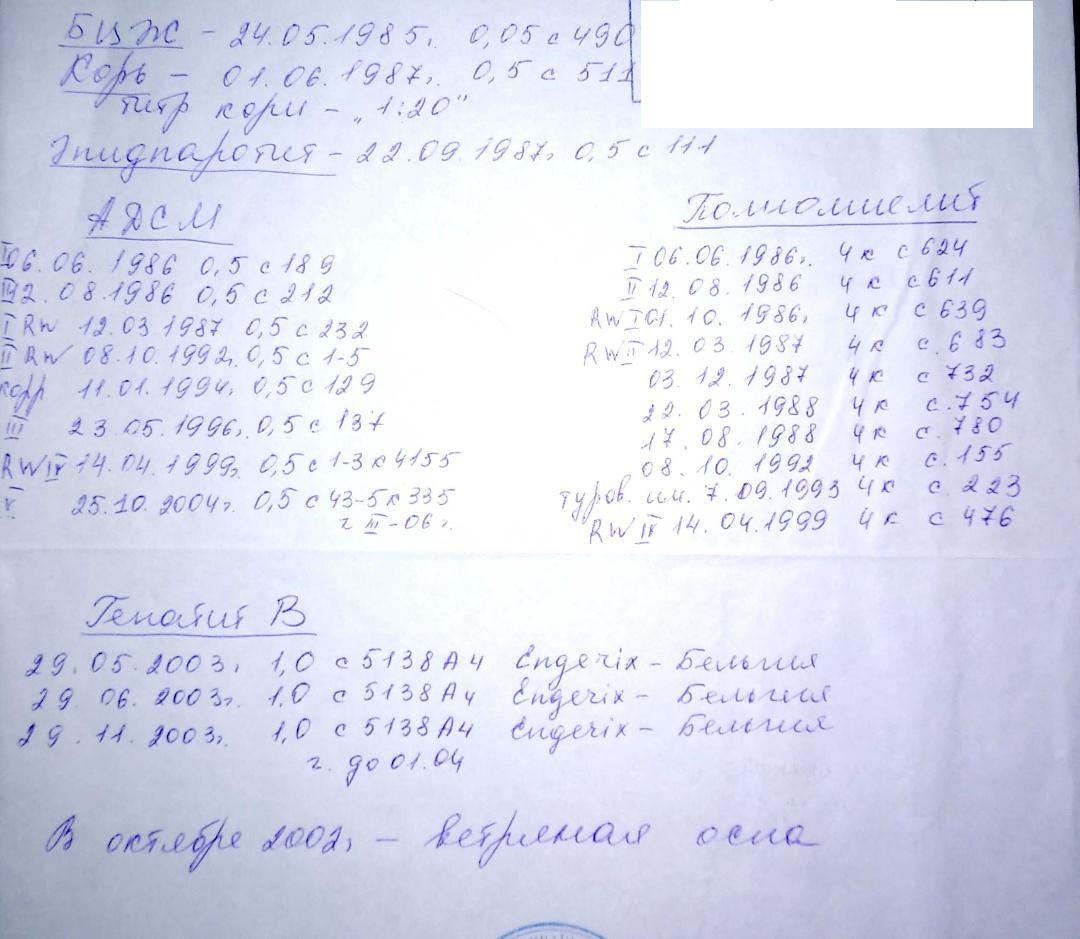 БЦЖ - 24.05.1985г. 0,05 с 490
Корь - 01.06.1987г. 0,5 с 511
титр кори - „1:20"
Эпидпаротит - 22.09.1987г. 0,5 с 111
АДСМ
I 06.06.1986 0,5 с 189
II 12.08.1986 0,5 с 212
I RW 12.03.1987 0,5 с 232
II RW 08.10.1992г. 0,5 с 1-5
корр 11.01.1994г. 0,5 с 129
III 23.05.1996г. 0,5 с 137
RW IV 14.04.1999г. 0,5 с 1-3 к 4155
V 25.10.2004г. 0,5 с 43-5 к 335
г III-06г.
Полиомиелит
I 06.06.1986г. 4к с 624
II 12.08.1986 4к с 611
RW I 01.10.1986г. 4к с 639
RW II 12.03.1987 4к с. 683
03.12.1987 4к с 732
22.03.1988 4к с. 754
17.08.1988 4к с. 780
08.10.1992 4к с. 155
туров. им. 7.09.1993 4к с. 223
RW IV 14.04.1999 4к с 476
Гепатит В
29.05.2003г. 1,0 с 5138А4 Енджерiх - Бельгия
29.06.2003г. 1,0 с 5138А4 Енджерiх - Бельгия
29.11.2003г. 1,0 с 5138А4 Енджерiх - Бельгия
г. до 01.04
В октябре 2002г. - ветряная оспа